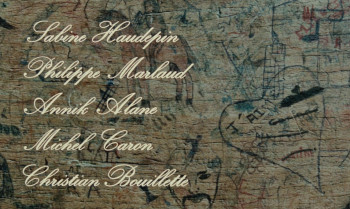 Sabine Haudepin
Philippe Marlaud
Annik Alane
Michel Caron
Christian Bouillette